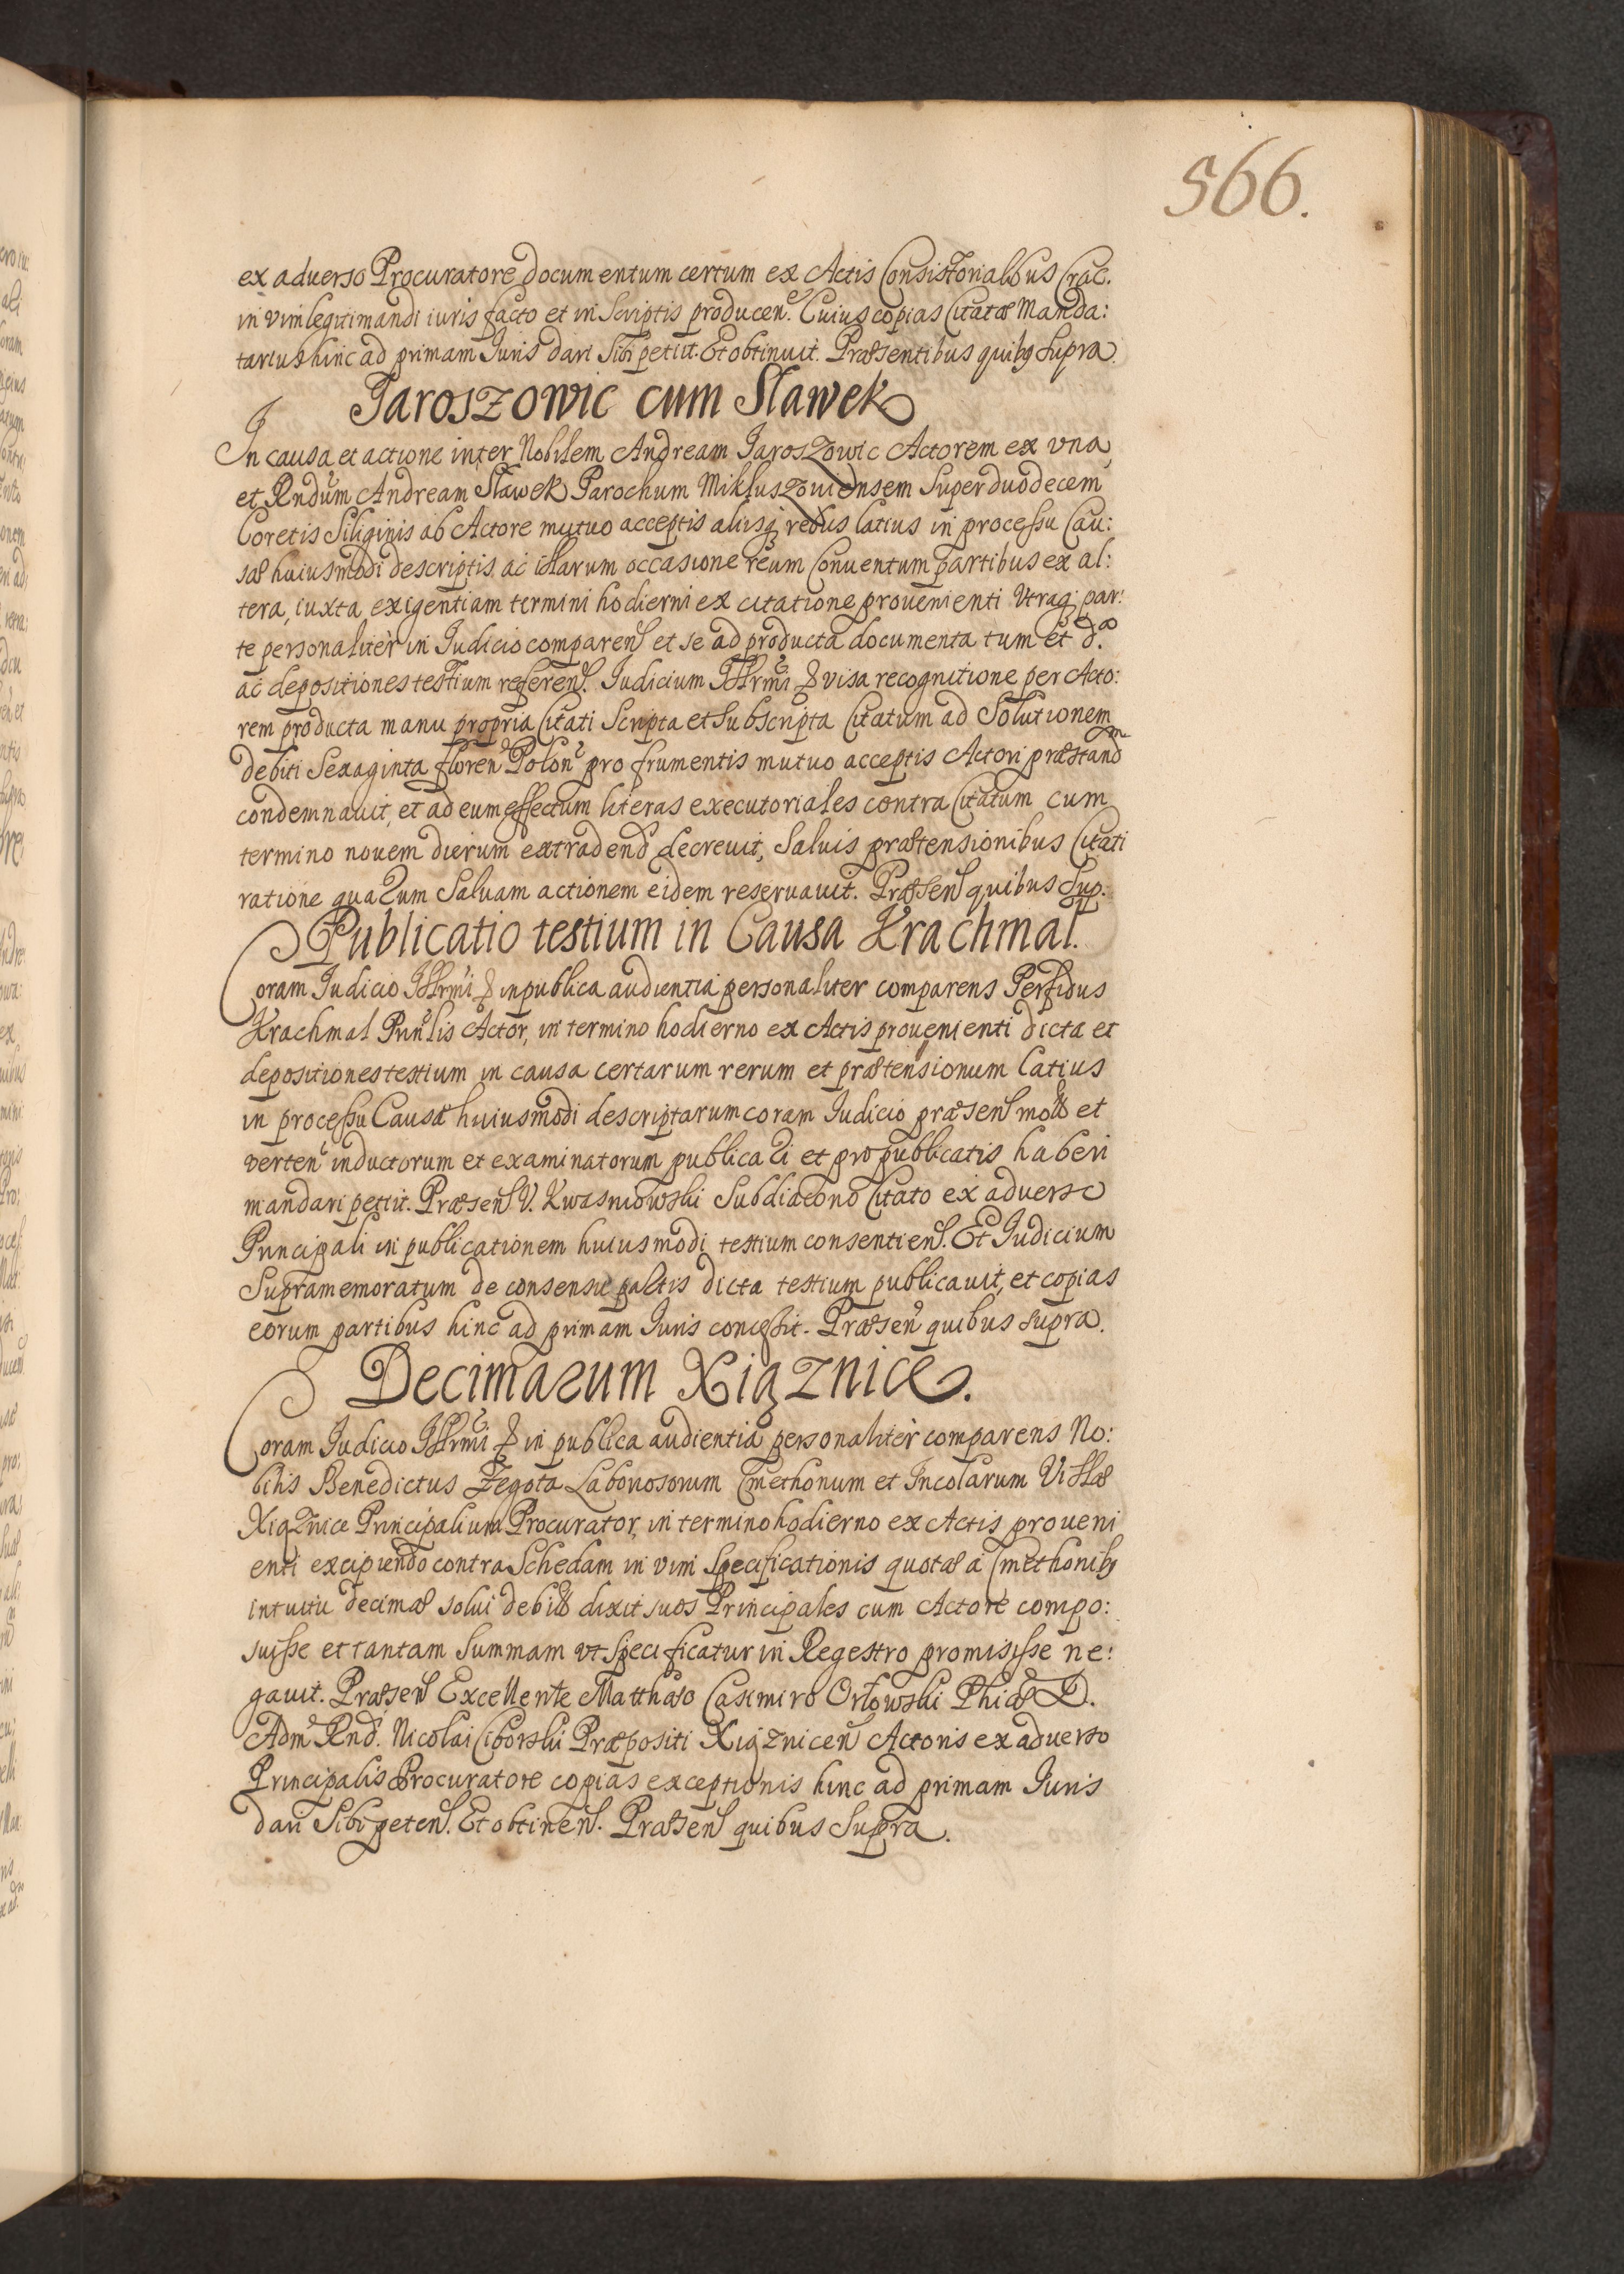 566.
ex aduerso Procuratore documentum certum ex Actis Consistorialibus Crac.
in vim legitimandi iuris facto et in Scriptis producen. Cuius copias Citatæ Manda:
tarius hinc ad primam Iuris dari Sibi petiit. Et obtinuit. Præsentibus quibq supra.
Jaroszowic cum Sławek
In causa et actione inter Nobilem Andream Jaroszowic Actorem ex vna,
et Rndum Andream Sławek Parochum Mikluszouiensem Super duodecem
Coretis Siliginis ab Actore mutuo acceptis alijsq rebus latius in processu Cau:
sæ huiusmodi descriptis ac illarum occasione reum Conuentum partibus ex al:
tera, iuxta exigentiam termini hodierni ex citatione prouenienti Vtraq par:
te personaliter in Iudicio comparen et se ad producta documenta tum et
ac depositiones testium referen. Iudicium Illrmi & visa recognitione per Acto:
rem producta manu propria Citati Scripta et Subscripta Citatum ad Solutionem
debiti Sexaginta floren Polon pro frumentis mutuo acceptis Actori præstand
condemnauit, et ad eum effectum literas executoriales contra Citatum cum
termino nouem dierum extradend decreuit, Saluis prætensionibus Citati
ratione quarum Saluam actionem eidem reseruauit. Præsen quibus Sup:
Publicatio testium in Causa Krachmal.
Coram Iudicio Illrmi & in publica audientia personaliter comparens Perfidus
Krachmal Prinlis Actor, in termino hodierno ex Actis prouenienti dicta et
depositiones testium in causa certarum rerum et prætensionum latius
in processu Causæ huiusmodi descriptarum coram Iudicio præsen et
verten inductorum et examinatorum publicari et pro publicatis haberi
mandari petiit. Præsen V. Kwasniowski Subdiacono Citato ex aduerso
Principali in publicationem huiusmodi testium consentien. Et Iudicium
Supramemoratum de consensu partis dicta testium publicauit, et copias
eorum partibus hinc ad primam Iuris concessit. Præsen quibus supra.
Decimarum Xiąznice.
Coram Iudicio Illrmi & in publica audientia personaliter comparens No:
bilis Benedictus Zegota Laboriosorum Cmethonum et Incolarum Villæ
Xiąznice Principalium Procurator, in termino hodierno ex Actis proueni
enti excipiendo contra Schedam in vim Specificationis quotæ a Cmethonibq
intuitu decimæ solui debit dixit suos Principales cum Actore compo:
suisse et tantam Summam vt Specificatur in Regestro promisisse ne:
gauit. Præsen Excellente Matthæo Casimiro Orłowski Phiæ D.
Adm Rnd. Nicolai Ciborski Præpositi Xiąznicen Actoris ex aduerso
Principalis Procuratore copias exceptionis hinc ad primam Iuris
dari Sibi peten. Et obtinen. Præsen quibus Supra.